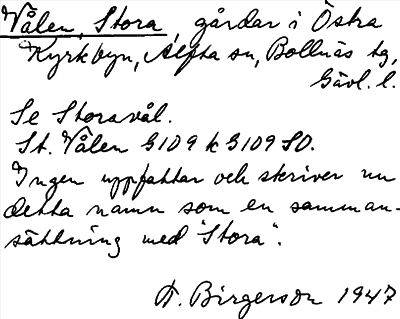 Vålen, Stora, gårdar i Östra
Kyrkbyn, Alfta sn, Bollnäs tg,
Gävl. l.
Se Storavål.
St. Vålen G109 k G109 SO.
Ingen uppfattar och skriver nu
detta namn som en samman-
sättning med "Stora".
F. Birgerson 1947